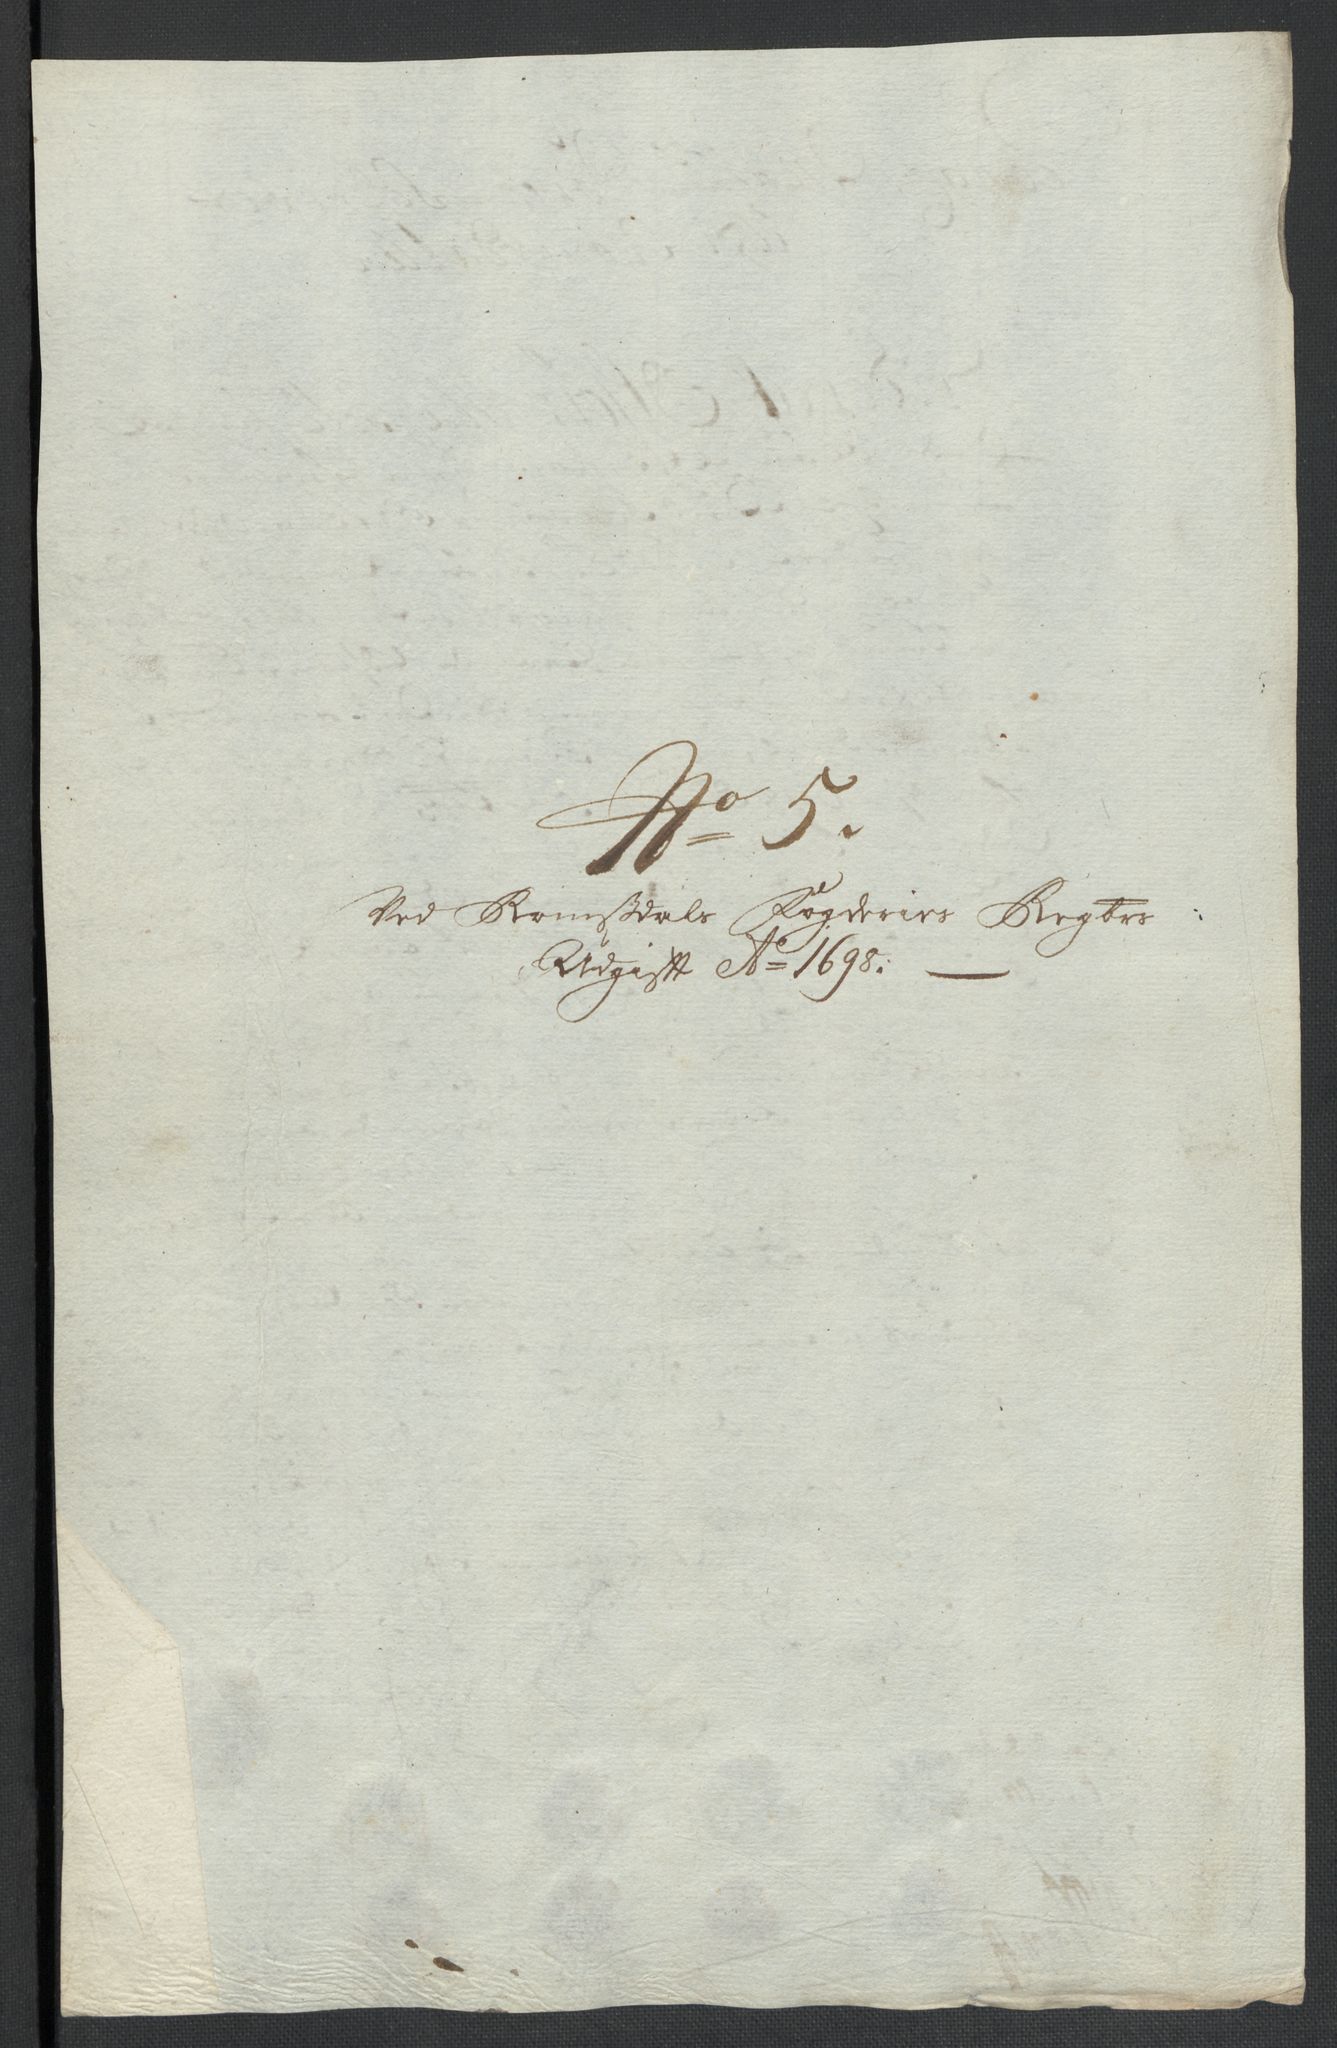 No 5.
Ved Romsdals Fogderies Regtes:
Udgift Ao 1698.